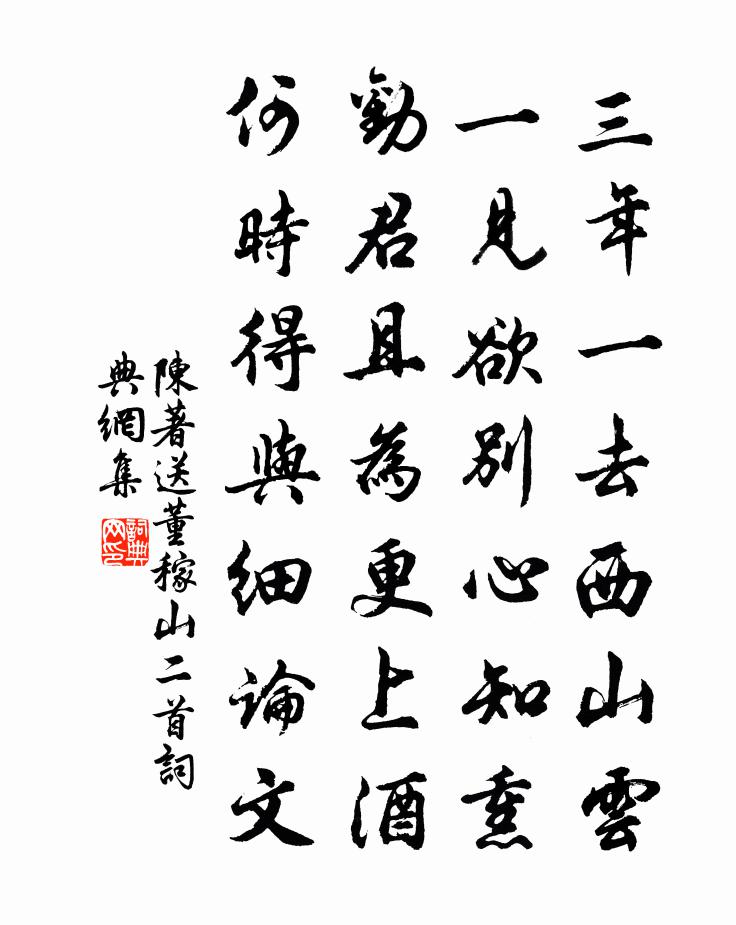 三年一去西山雲
一見欲別心知熏
勸君且為更上酒
何時得與細論文
陳著送董稼山二首詞
典網集
詞典
网印